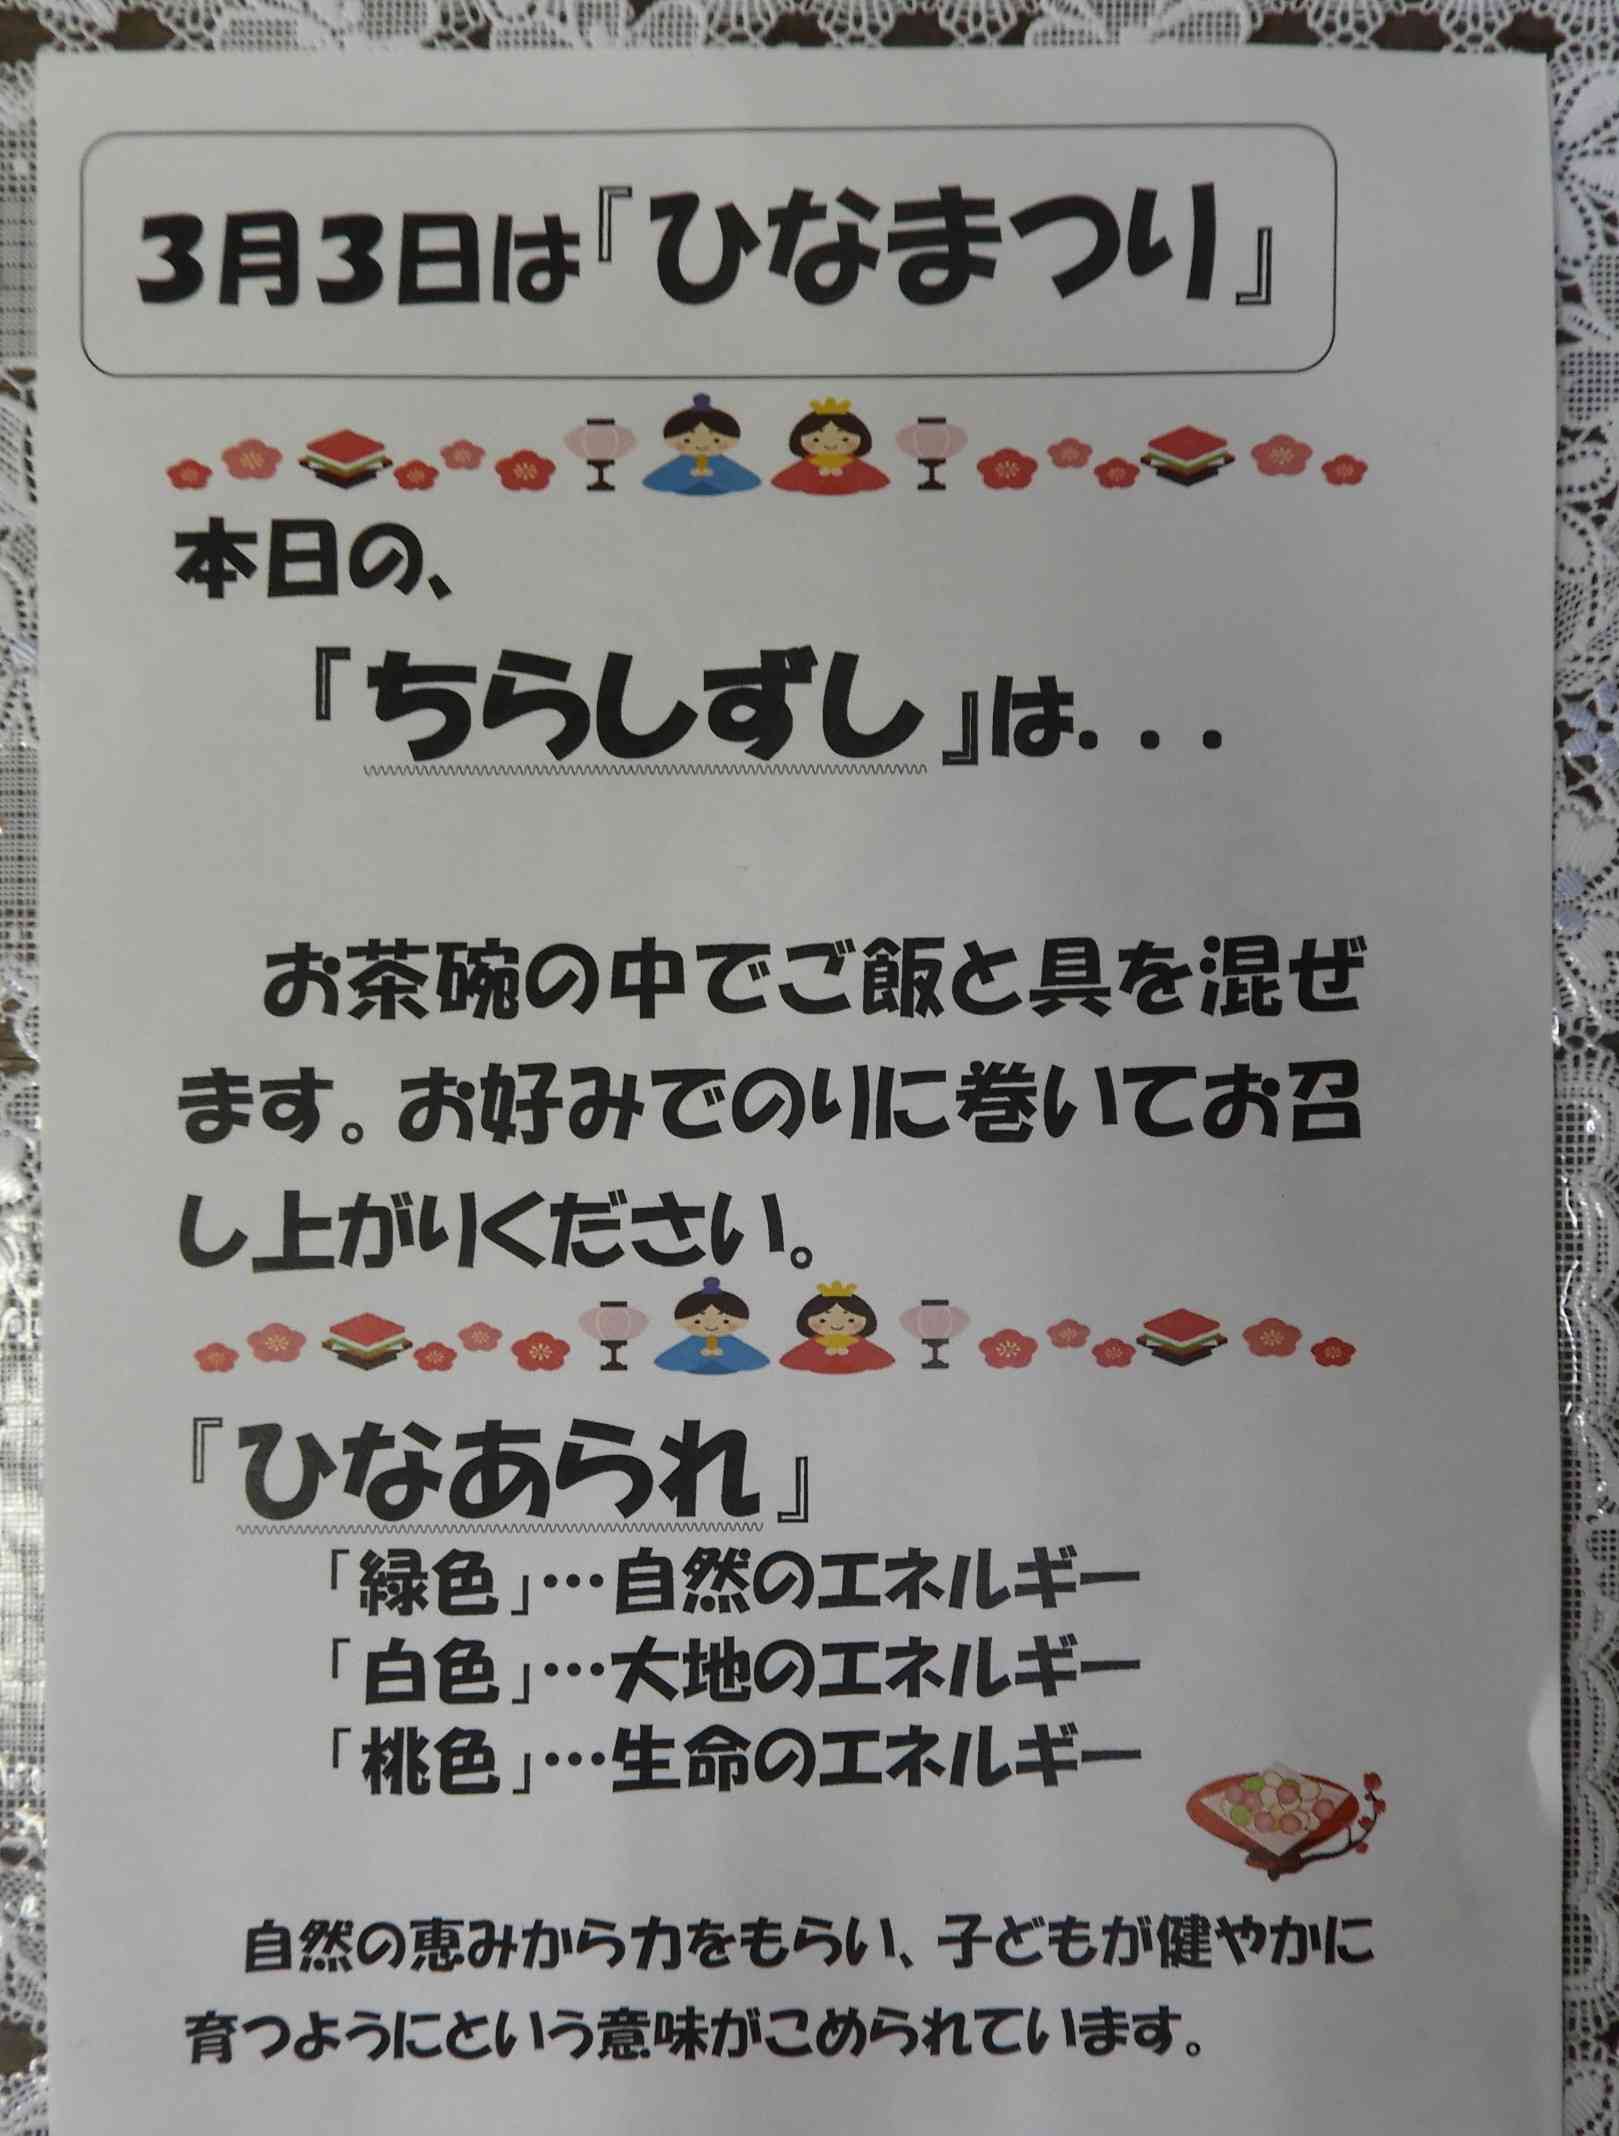 3月3日は『ひなまつり』
本日の、
『ちらしずし』は．．．
お茶碗の中でご飯と具を混ぜ
ます。お好みでのりに巻いてお召
し上がりください。
『ひなあられ』
「緑色」…自然のエネルギー
「白色」…大地のエネルギー
「桃色」…生命のエネルギー
自然の恵みから力をもらい、子どもが健やかに
育つようにという意味がこめられています。